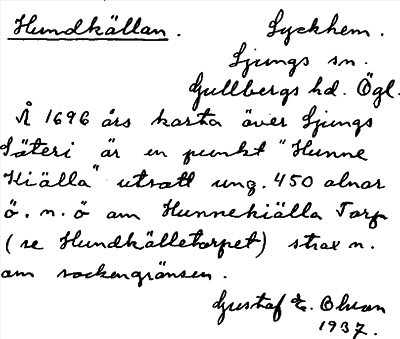 Hundkällan. Lyckhem.
Ljungs sn.
Gullbergs hd. Ögl.
Å 1696 års karta över Ljungs
Säteri är en punkt "Hunne
Kiälla" utsatt ung. 450 alnar
ö. n. ö om Hunnekiälla Torp
(se Hundkälletorpet) strax n.
om sockengränsen.
Gustaf E. Olson
1937.